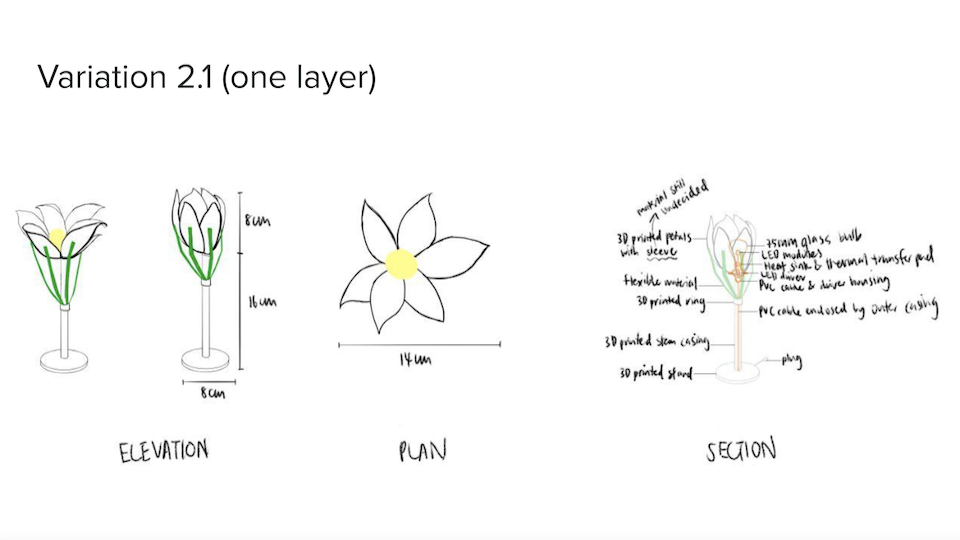 Variation 2.1 (one layer)
8cm
16cm
8cm
ELEVATION
14cm
PLAN
material still
undecided
3D printed petals
with sleeve
flexible material
3D printed ring
3D printed stem casing
3D printed stand
75mm glass bulb
LED modules
Heat sink & thermal transfer pad
LED driver
PVC cable & driver housing
PVC cable enclosed by outer casing
plug
SECTION